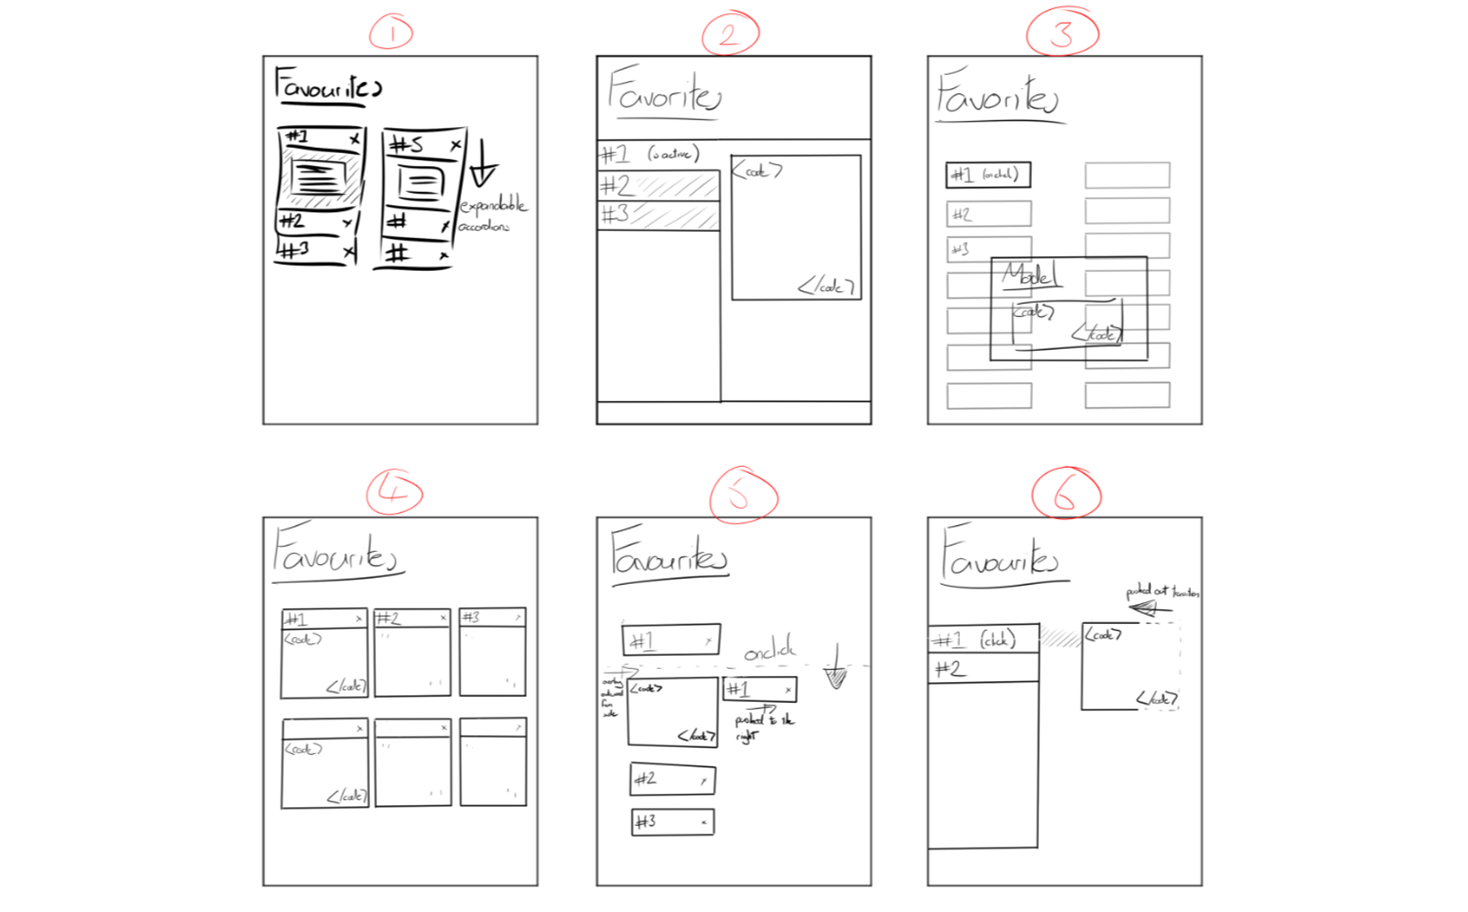 1
Favourites
#1 x
#2 x
#3 x
#5 x
# x
# x
expandable
accordions
2
Favorites
#1 (active)
#2
#3
<code>
</code>
3
Favorites
#1 (onclick)
#2
#3
Model
<code>
</code>
4
Favourites
#1 x
#2 x
#3 x
<code>
</code>
x
x
x
<code>
</code>
5
Favourites
#1 x
onclick
from
side
<code>
</code>
#1 x
pushed to the
right
#2 x
#3 x
6
Favourites
pushed out transition
#1 (click)
#2
<code>
</code>